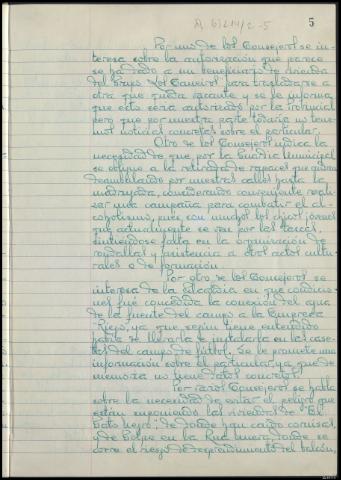 A 6/214/2-5
5
Por uno de los Consejeros se in-
teresa sobre la autorización que parece
se ha dado a un beneficiario de vivienda
del Grupo Los Caneiros para trasladarse a
otra que queda vacante y se le informa
que esto sería autorizado por la Provincial
pero que por nuestra parte todavía no tene-
mos noticias concretas sobre el particular.
Otro de los Consejeros indica la
necesidad de que por la Guardia Municipal
se obligue a la retirada de rapaces que andan
deambulando por nuestras calles hasta la
madrugada, considerando conveniente reali-
zar una campaña para combatir el al-
coholismo, pues son muchos los chicos jóvenes
que actualmente se ven por las tascas,
sintiéndose falta en la organización de
rondallas y asistencia a otros actos cultu-
rales o de formación.
Por otro de los Consejeros se
interesa de la Alcaldía en que condicio-
nes fué concedida la conexión del agua
de la fuente del campo a la Empresa
Riego, ya que según tiene entendido
había de llevarla e instalarla en las case-
tas del campo de fútbol. Se le promete una
información sobre el particular, ya que de
memoria no tiene datos concretos.
Por varios Consejeros se habla
sobre la necesidad de evitar el peligro que
están suponiendo las viviendas de "El
Gato negro", de donde han caído cornisas,
y de Golpe en la Rua nueva, donde se
corre el riesgo de desprendimiento del balcón,